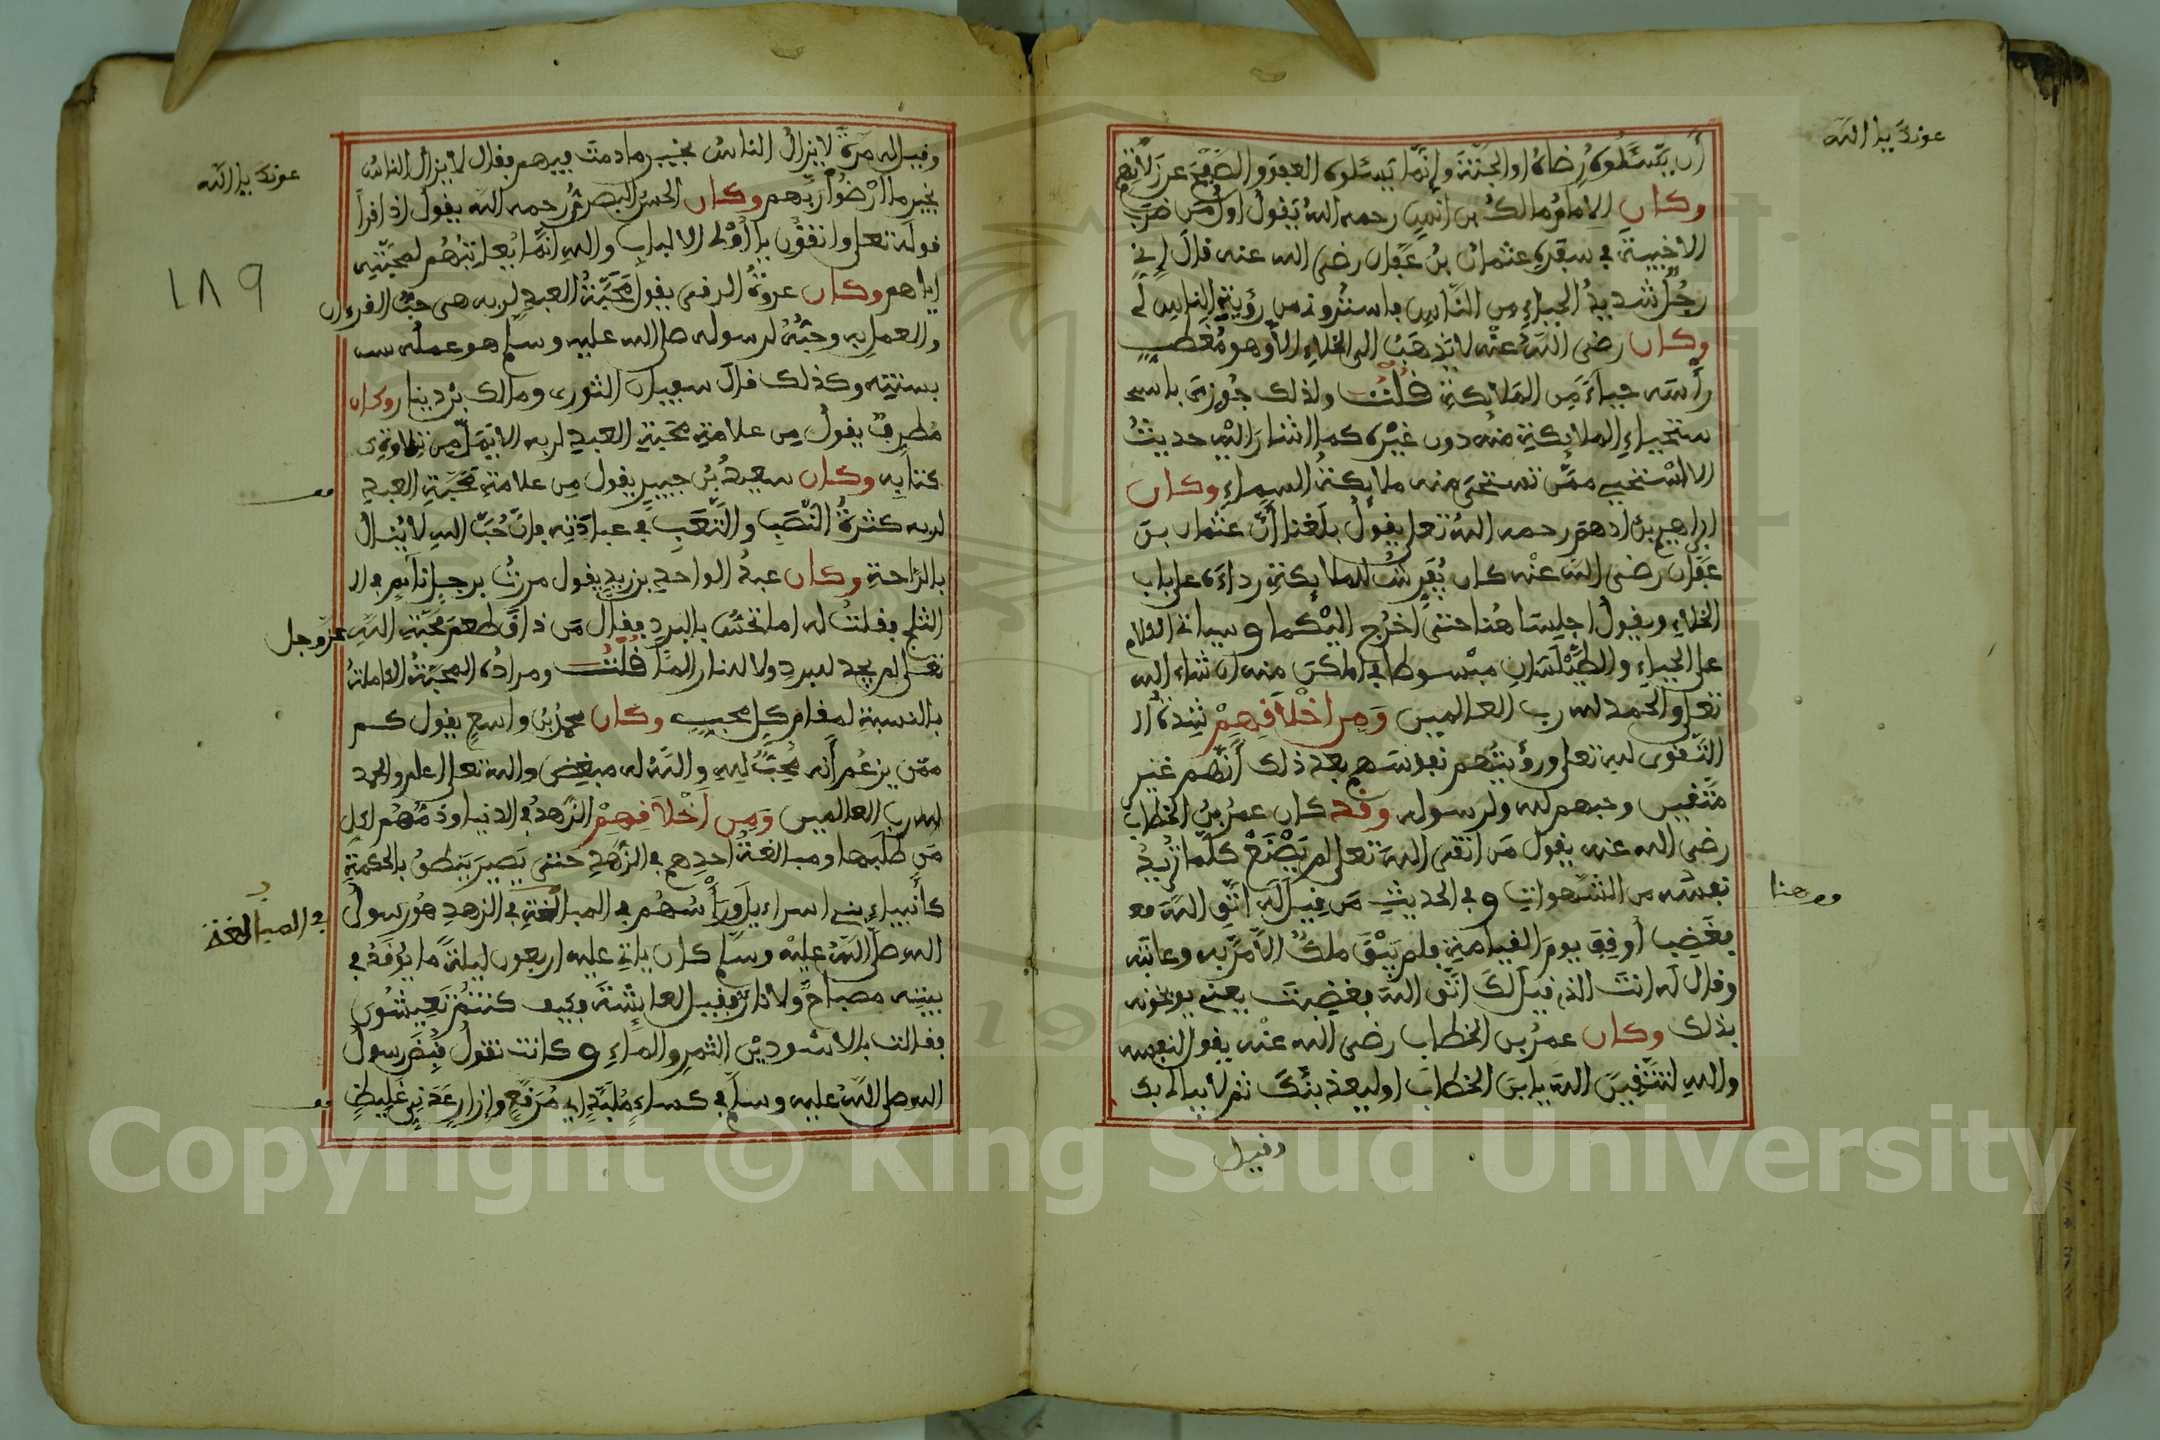 عونك يا الله
أن يسئلوه رضاه او الجنة وإنما يسئلوه العفو والصفح عن زلاتهم
وكان الامام مالك بن انس رحمه الله يقول اول من ضرب
الاخبية في سفره عثمان بن عفان رضى الله عنه قال إني
رجل شديد الحياء من الناس فاستتروني من رؤية الناس لى
وكان رضى الله عنه لا يذهب الى الخلاء الا وهو مغط
رأسه حياء من الملائكة قلت ولذلك جوزى باسـ
ستحياء الملائكة منه دون غيره كما اشار اليه حديث
الا استحي ممن تستحى منه ملائكة السماء وكان
ابراهيم بن ادهم رحمه الله تعلى يقول بلغنا أن عثمان بن
عفان رضى الله عنه كان يفرش للملائكة رداءه على باب
الخلاء ويقول اجلسا هنا حتى اخرج اليكما وسياتى الكلام
على الحياء والطيلسان مبسوطا في اماكن منه ان شاء الله
تعلى والحمد لله رب العالمين ومن اخلاقهم شدة
التقوى لله تعلى ورؤيتهم نفوسهم بعد ذلك أنهم غير
متقين وحبهم لله ولرسوله وقد كان عمر بن الخطاب
رضى الله عنه يقول من اتقى الله تعلى لم يصنع كلما تريد
نفسه من الشهوات وفي الحديث من قيل له اتق الله
فغضب أوقف يوم القيامة فلم يبق ملك الا مر به وعاتبه
وقال له انت الذى قيل لك اتق الله فغضبت يعنى يوبخونه
بذلك وكان عمر بن الخطاب رضى الله عنه يقول لنفسه
والله لتتقين الله يا بن الخطاب او ليعذبنك ثم لا يبالى بك
وقيل
عونك يا الله
١٨٩
وقيل له مرة لا يزال الناس بخير ما دمت فيهم فقال لا يزال الناس
بخير ما ارضوا ربهم وكان الحسن البصرى رحمه الله يقول اذا قرأ
قوله تعلى واتقون يا أولى الالباب والله انما يعاتبهم لمحبته
اياهم وكان عروة الرقى يقول محبة العبد لربه هى حب القرءان
والعمل به وحبه لرسوله صلى الله عليه وسلم هو عمله
بسنته وكذلك قال سفيان الثورى ومالك بن دينار وكان
مطرف يقول من علامة محبة العبد لربه الا يمل من تلاوة
كتابه وكان سعيد بن جبير يقول من علامة محبة العبد
لربه كثرة النصب والتعب في عبادته فان حب الله لا ينال
بالراحة وكان عبد الواحد بن زيد يقول مررت برجل نائم في
الثلج فقلت له اما تحس بالبرد فقال من ذاق طعم محبة الله عز وجل
تعلى لم يجد للبرد ولا للنار الما قلت ومراده المحبة الكاملة
بالنسبة لمقام كل محب وكان محمد بن واسع يقول كم
ممن يزعم أنه محب لله والله له مبغض والله تعلى اعلم والحمد
لله رب العالمين ومن اخلاقهم الزهد في الدنيا وذمهم لكل
من طلبها ومبالغة احدهم في الزهد حتى يصير ينطق بالحكمة
كأنبياء بنى اسراءيل ورأسهم في المبالغة في الزهد هو رسول
في المبالغة
الله صلى الله عليه وسلم كان ياتى عليه اربعون ليلة ما يوقد في
بيته مصباح ولا نار فقيل لعائشة فكيف كنتم تعيشون
فقالت بالاسودين التمر والماء وكانت تقول قبض رسول
الله صلى الله عليه وسلم في كساء ملبد اى مرقع وازار عدنى غليظ
Copyright © King Saud University